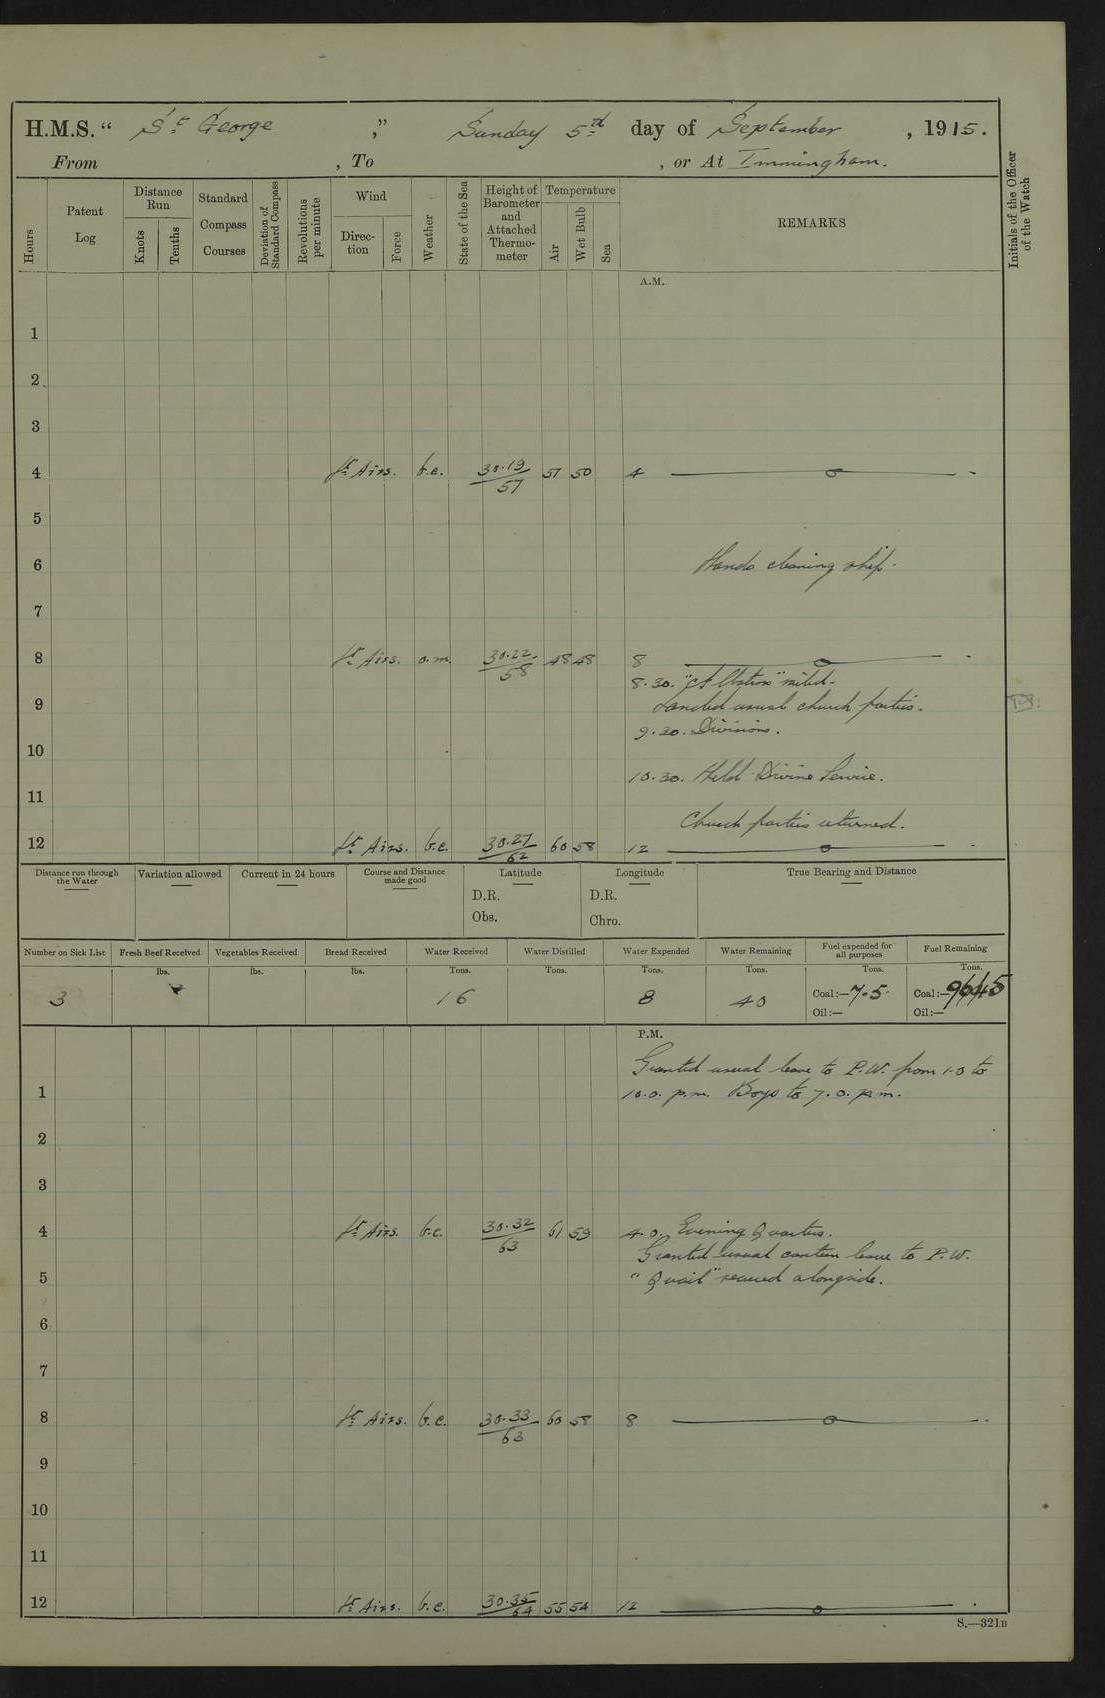 H.M.S. “ St George ,” Sunday 5th day of September , 1915.
From , To , or At Immingham.
Hours
Patent Log
Distance Run
Knots
Tenths
Standard Compass Courses
Deviation of Standard Compass
Revolutions per minute
Wind
Direc-tion
Force
Weather
State of the Sea
Height of Barometer and Attached Thermo-meter
Temperature
Air
Wet Bulb
Sea
REMARKS
Initials of the Officer of the Watch
A.M.
1
2
3
4 Lt Airs. b.c. 30.19/57 57 50 4
5
6 Hands cleaning ship.
7
8 Lt Airs. o.m. 30.22/58 48 48 8
8.30.
9 Landed usual church parties.
9.30. Divisions.
10
10.30. Held Divine Service.
11
Church parties returned.
12 Lt Airs. b.c. 30.27/62 60 58 12
Distance run through the Water
Variation allowed
Current in 24 hours
Course and Distance made good
Latitude
D.R.
Obs.
Longitude
D.R.
Chro.
True Bearing and Distance
Number on Sick List
Fresh Beef Received
Vegetables Received
Bread Received
Water Received
Water Distilled
Water Expended
Water Remaining
Fuel expended for all purposes
Fuel Remaining
lbs. lbs. lbs. Tons. Tons. Tons. Tons. Tons. Tons.
3 16 8 40 Coal:—7.5. Coal:—
Oil:— Oil:—
P.M.
Granted usual leave to P.W. from 1.0 to
1 10.0. p.m. Boys to 7.0. p.m.
2
3
4 Lt Airs. b.c. 30.32/63 61 59 4.0. Evening Quarters.
Granted usual canteen leave to P.W.
5 “Quail” secured alongside.
6
7
8 Lt Airs. b.c. 30.33/63 60 58 8
9
10
11
12 Lt Airs. b.c. 30.35/64 55 54 12
S.—321B